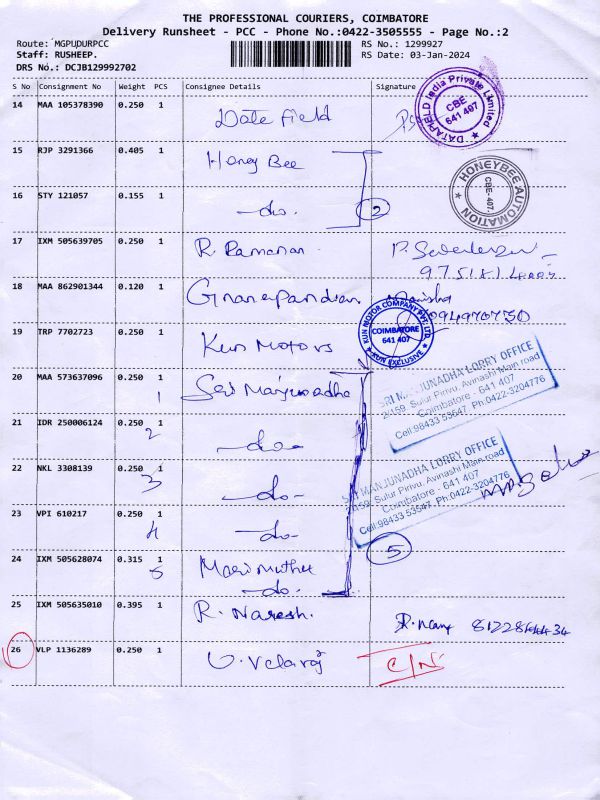 THE PROFESSIONAL COURIERS, COIMBATORE
Delivery Runsheet - PCC - Phone No.:0422-3505555 - Page No.:2
Route: MGPUDURPCC RS No.: 1299927
Staff: RUSHEEP. RS Date: 03-Jan-2024
DRS No.: DCJB129992702
S No Consignment No Weight PCS Consignee Details Signature
14 MAA 105378390 0.250 1 Date Field
DATAFIELD India Private Limited
CBE
641 407
15 RJP 3291366 0.405 1 Honey Bee
HONEYBEE AUTOMATION
CBE-407.
16 STY 121057 0.155 1 -do- 2
17 IXM 505639705 0.250 1 R. Ramanan
18 MAA 862901344 0.120 1 Gnanapandian
19 TRP 7702723 0.250 1 Kun Motors
KUN MOTOR COMPANY PVT. LTD.
COIMBATORE
641 407
KUN EXCLUSIVE
20 MAA 573637096 0.250 1 1 Sri Manjunadha
SRI MANJUNADHA LORRY OFFICE
2/159, Sulur Pirivu, Avinashi Main road
Coimbatore - 641 407
Cell:98433 53547, Ph:0422-3204776
21 IDR 250006124 0.250 1 2 -do-
22 NKL 3308139 0.250 1 3 -do-
SRI MANJUNADHA LORRY OFFICE
2/159, Sulur Pirivu, Avinashi Main road
Coimbatore - 641 407
Cell:98433 53547, Ph:0422-3204776
23 VPI 610217 0.250 1 4 -do-
24 IXM 505628074 0.315 1 5 Marimuthu 5
-do-
25 IXM 505635010 0.395 1 R. Naresh.
26 VLP 1136289 0.250 1 V. Velaraj C/N